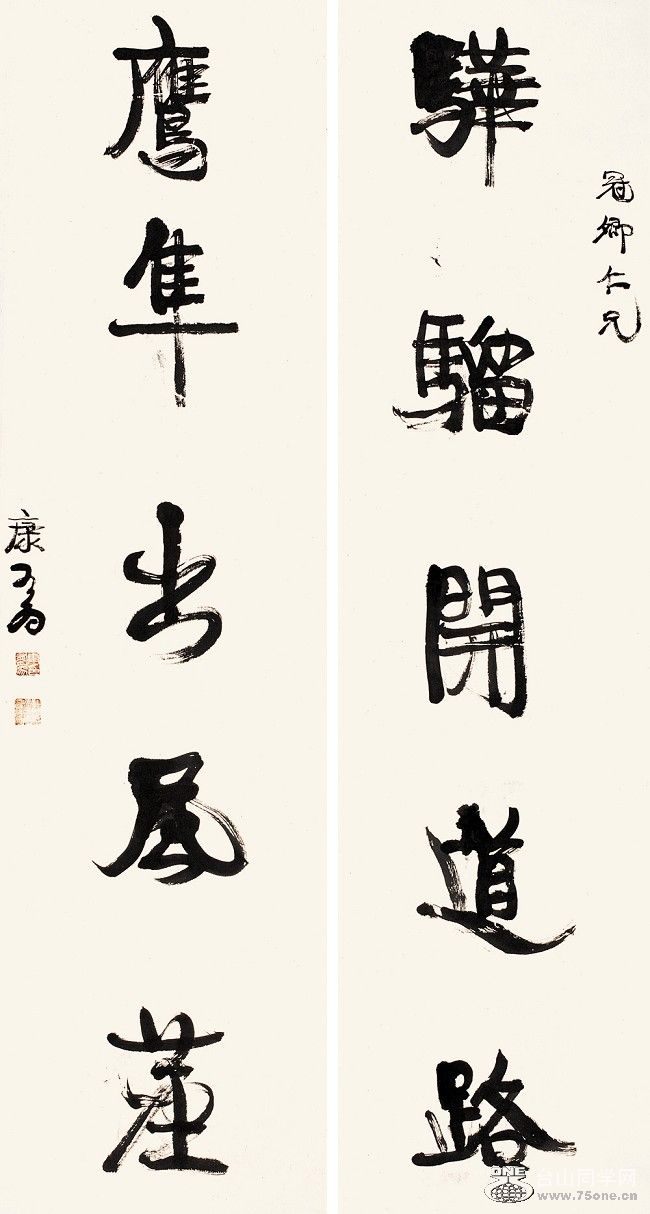 冠卿仁兄
驊騮開道路
鷹隼出風塵
康有為
ONE
台山同学网
www.75one.cn